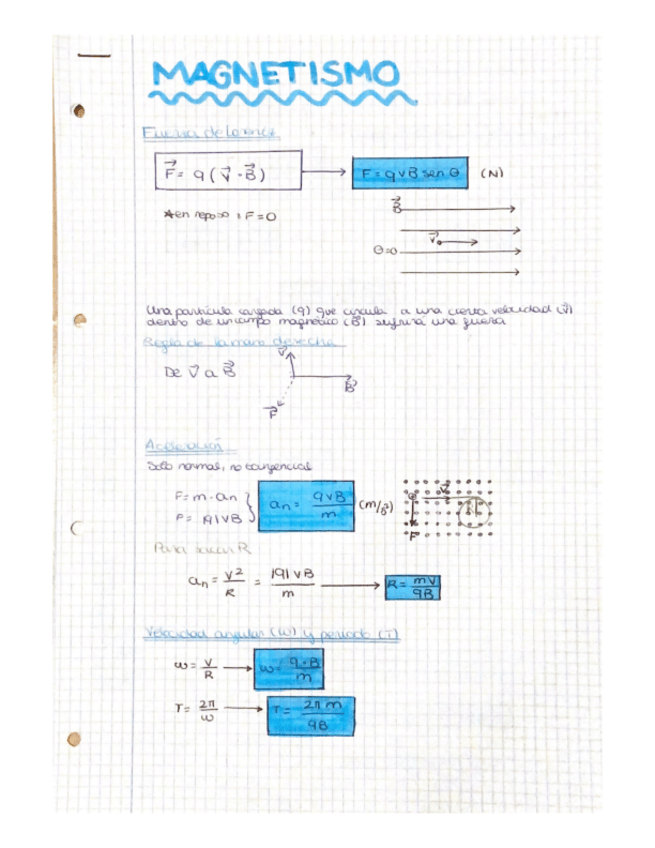 MAGNETISMO
Fuerza de Lorentz
F⃗ = q (V⃗ · B⃗) → F = qvB sen θ (N)
*en reposo, F=0
B⃗
V⃗
θ=0
Una partícula cargada (q) que circula a una cierta velocidad (V⃗)
dentro de un campo magnético (B⃗) sufrirá una fuerza
Regla de la mano derecha
De V⃗ a B⃗
V⃗
B⃗
F⃗
Aceleración
Solo normal, no tangencial
F = m · an
F = |q|vB
an = qvB / m (m/s²)
V⃗
R
F
Para sacar R
an = v² / R = |q|vB / m → R = mv / qB
Velocidad angular (ω) y periodo (T)
ω = v / R → ω = q·B / m
T = 2π / ω → T = 2π m / qB